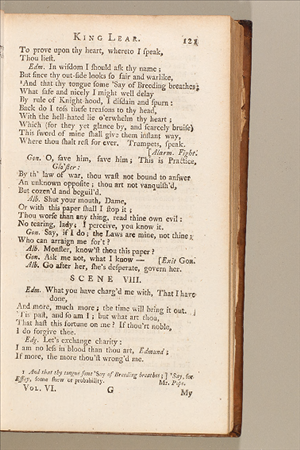 KING LEAR. 121
To prove upon thy heart, whereto I ſpeak,
Thou lieſt.
Edm. In wiſdom I ſhould aſk thy name;
But ſince thy out-ſide looks ſo fair and warlike,
¹And that thy tongue ſome 'Say of Breeding breathes;
What ſafe and nicely I might well delay
By rule of Knight-hood, I diſdain and ſpurn:
Back do I toſs theſe treaſons to thy head,
With the hell-hated lie o'erwhelm thy heart;
Which (for they yet glance by, and ſcarcely bruiſe)
This ſword of mine ſhall give them inſtant way,
Where thou ſhalt reſt for ever. Trumpets, ſpeak.
[Alarm. Fight.
Gon. O, ſave him, ſave him; This is Practice,
Glo'ſter:
By th' law of war, thou waſt not bound to anſwer
An unknown oppoſite; thou art not vanquiſh'd,
But cozen'd and beguil'd.
Alb. Shut your mouth, Dame,
Or with this paper ſhall I ſtop it;
Thou worſe than any thing, read thine own evil:
No tearing, lady; I perceive, you know it.
Gon. Say, if I do; the Laws are mine, not thine;
Who can arraign me for't?
Alb. Monſter, know'ſt thou this paper?
Gon. Aſk me not, what I know— [Exit Gon.
Alb. Go after her, ſhe's deſperate, govern her.
SCENE VIII.
Edm. What you have charg'd me with, That I have
done,
And more, much more; the time will bring it out.
'Tis paſt, and ſo am I; but what art thou,
That haſt this fortune on me? If thou'rt noble,
I do forgive thee.
Edg. Let's exchange charity:
I am no leſs in blood than thou art, Edmund;
If more, the more thou'ſt wrong'd me.
1 And that thy tongue ſome 'Say of Breeding breathes;] 'Say, for
Eſſay, ſome ſhew or probability. Mr. Pope.
VOL. VI. G My